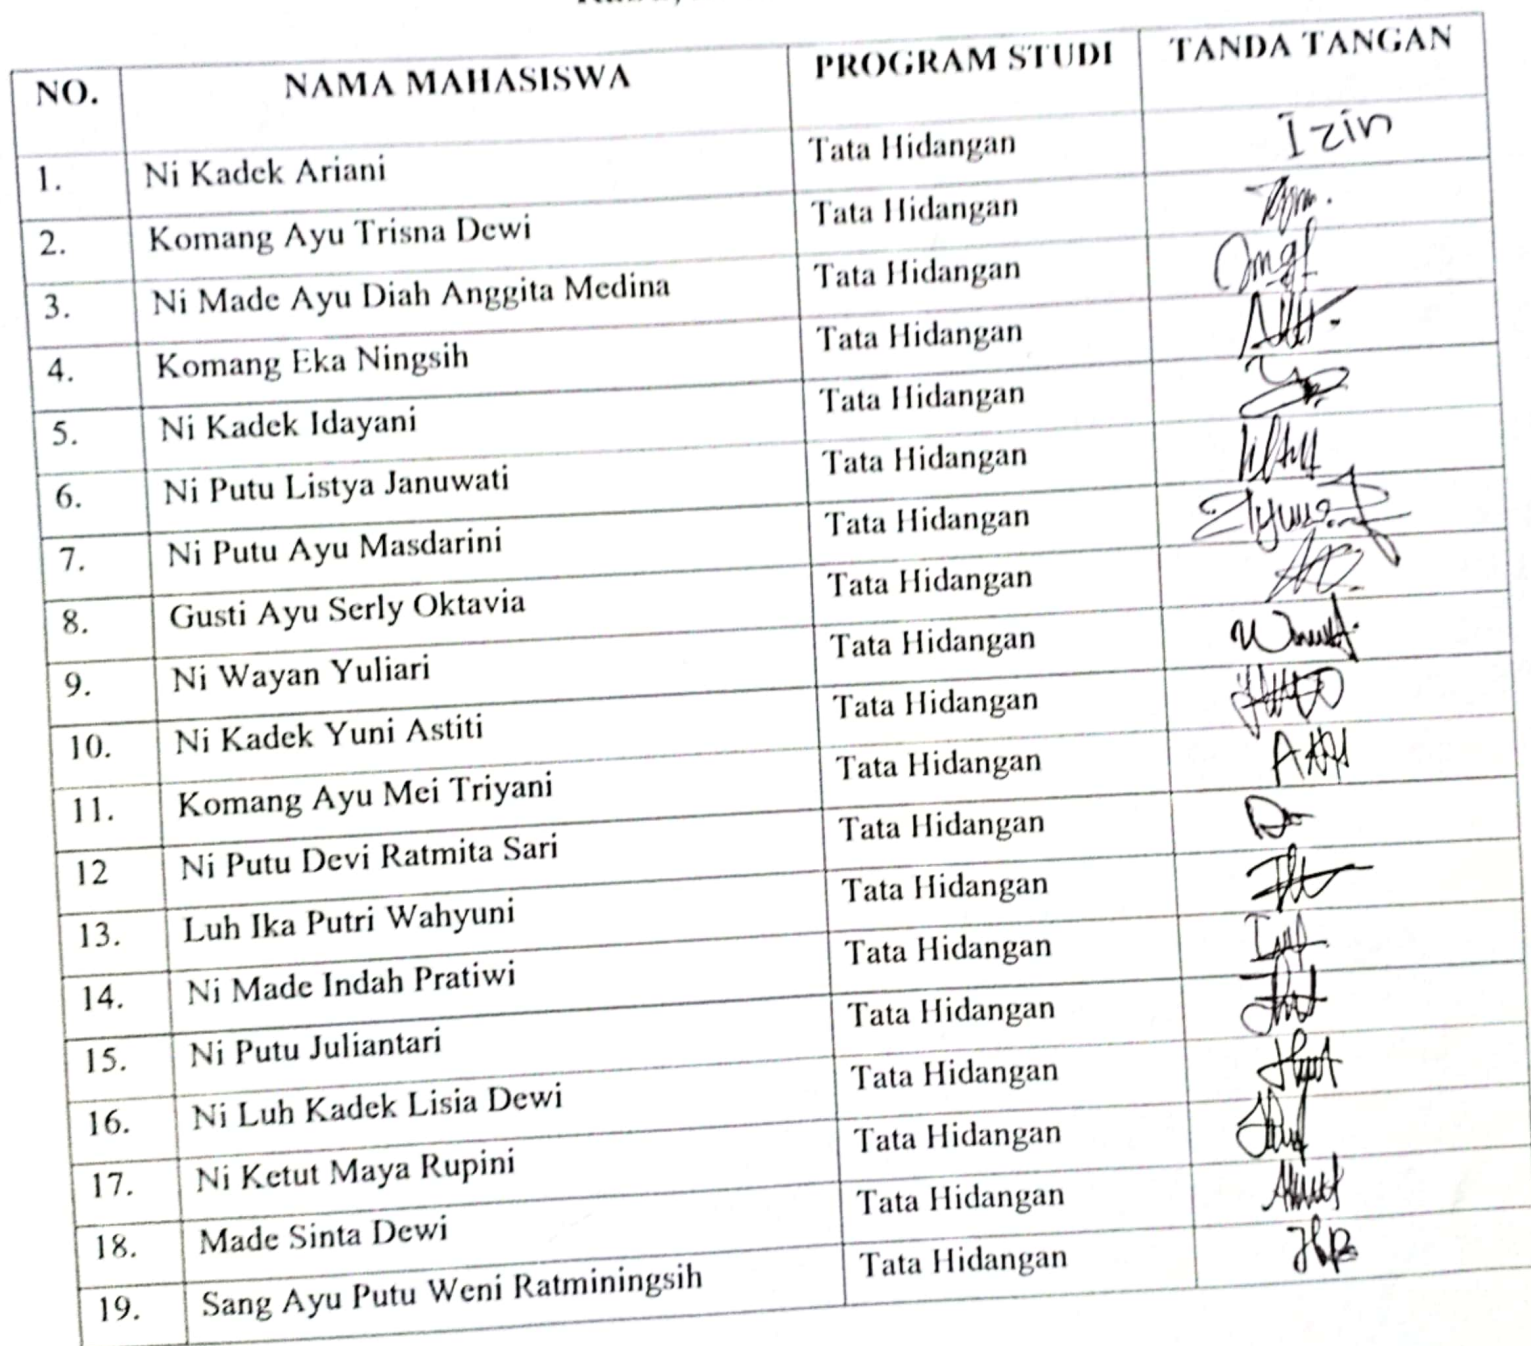 NO. NAMA MAHASISWA PROGRAM STUDI TANDA TANGAN
1. Ni Kadek Ariani Tata Hidangan Izin
2. Komang Ayu Trisna Dewi Tata Hidangan
3. Ni Made Ayu Diah Anggita Medina Tata Hidangan
4. Komang Eka Ningsih Tata Hidangan
5. Ni Kadek Idayani Tata Hidangan
6. Ni Putu Listya Januwati Tata Hidangan
7. Ni Putu Ayu Masdarini Tata Hidangan
8. Gusti Ayu Serly Oktavia Tata Hidangan
9. Ni Wayan Yuliari Tata Hidangan
10. Ni Kadek Yuni Astiti Tata Hidangan
11. Komang Ayu Mei Triyani Tata Hidangan
12 Ni Putu Devi Ratmita Sari Tata Hidangan
13. Luh Ika Putri Wahyuni Tata Hidangan
14. Ni Made Indah Pratiwi Tata Hidangan
15. Ni Putu Juliantari Tata Hidangan
16. Ni Luh Kadek Lisia Dewi Tata Hidangan
17. Ni Ketut Maya Rupini Tata Hidangan
18. Made Sinta Dewi Tata Hidangan
19. Sang Ayu Putu Weni Ratminingsih Tata Hidangan